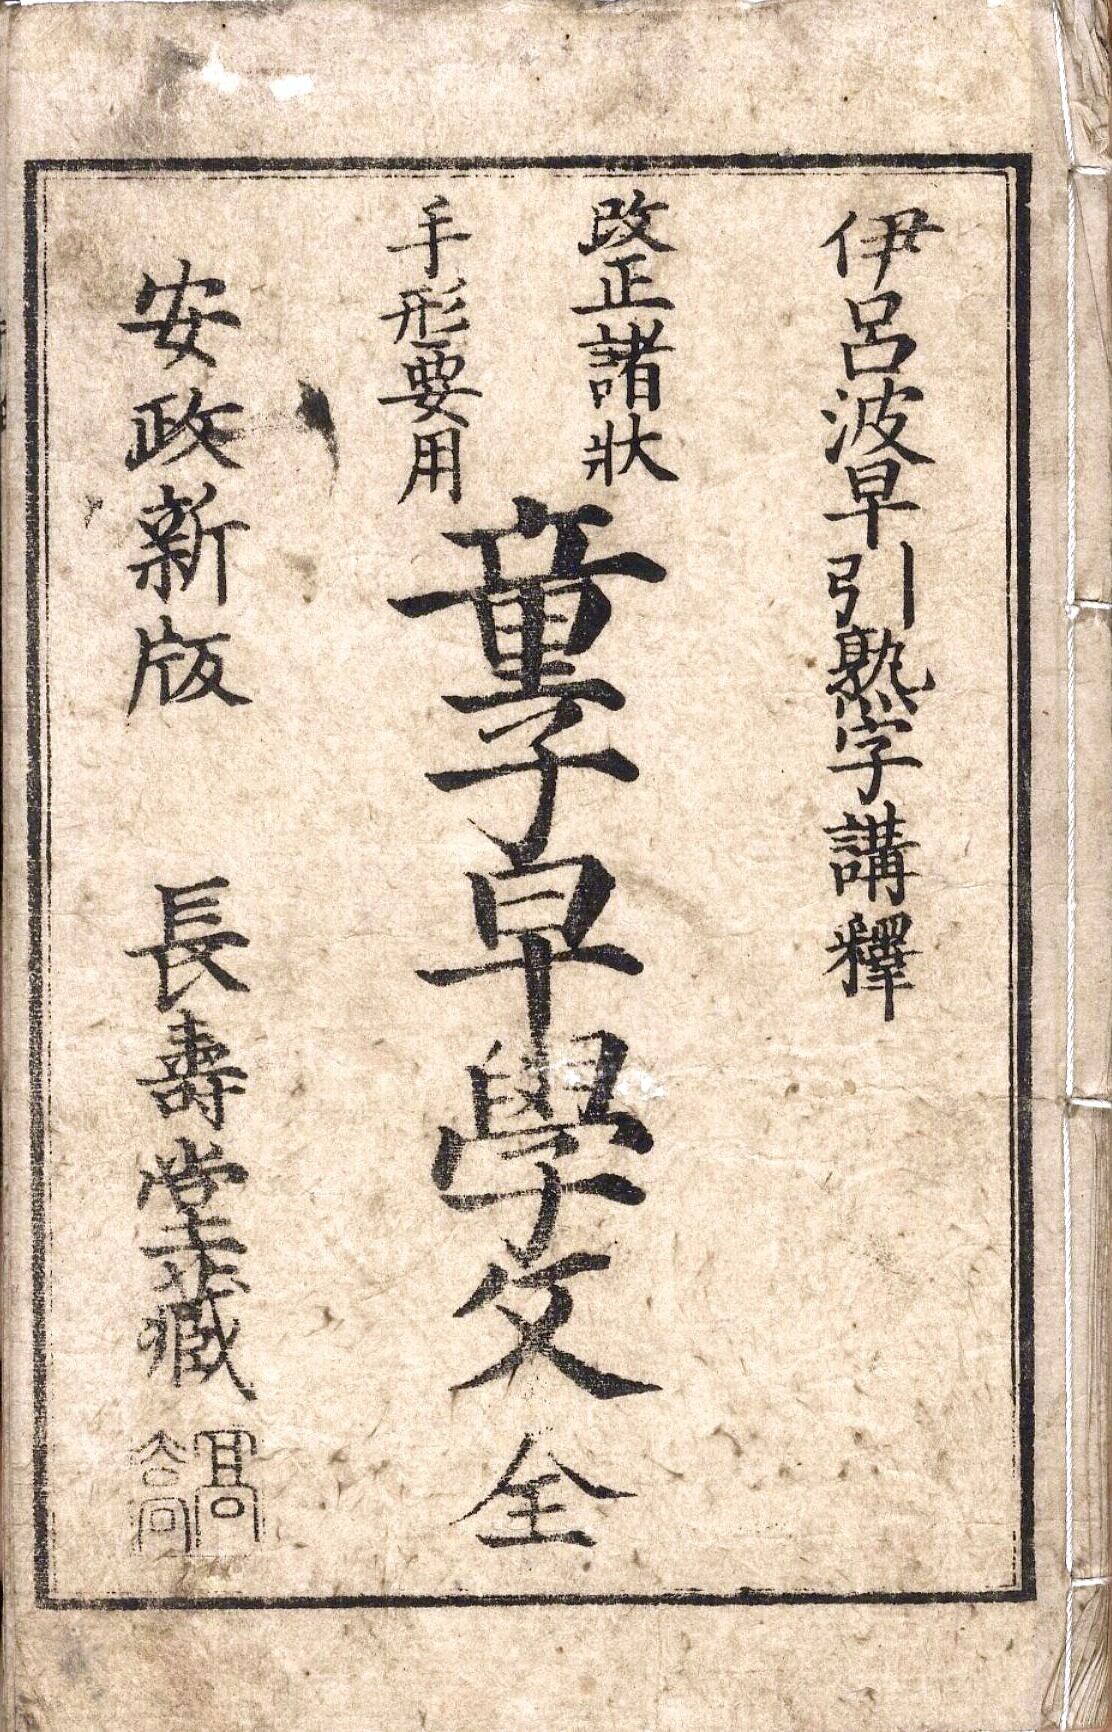 伊呂波早引熟字講釋
改正諸狀
手形要用
童子早學文 全
安政新版 長壽堂藏